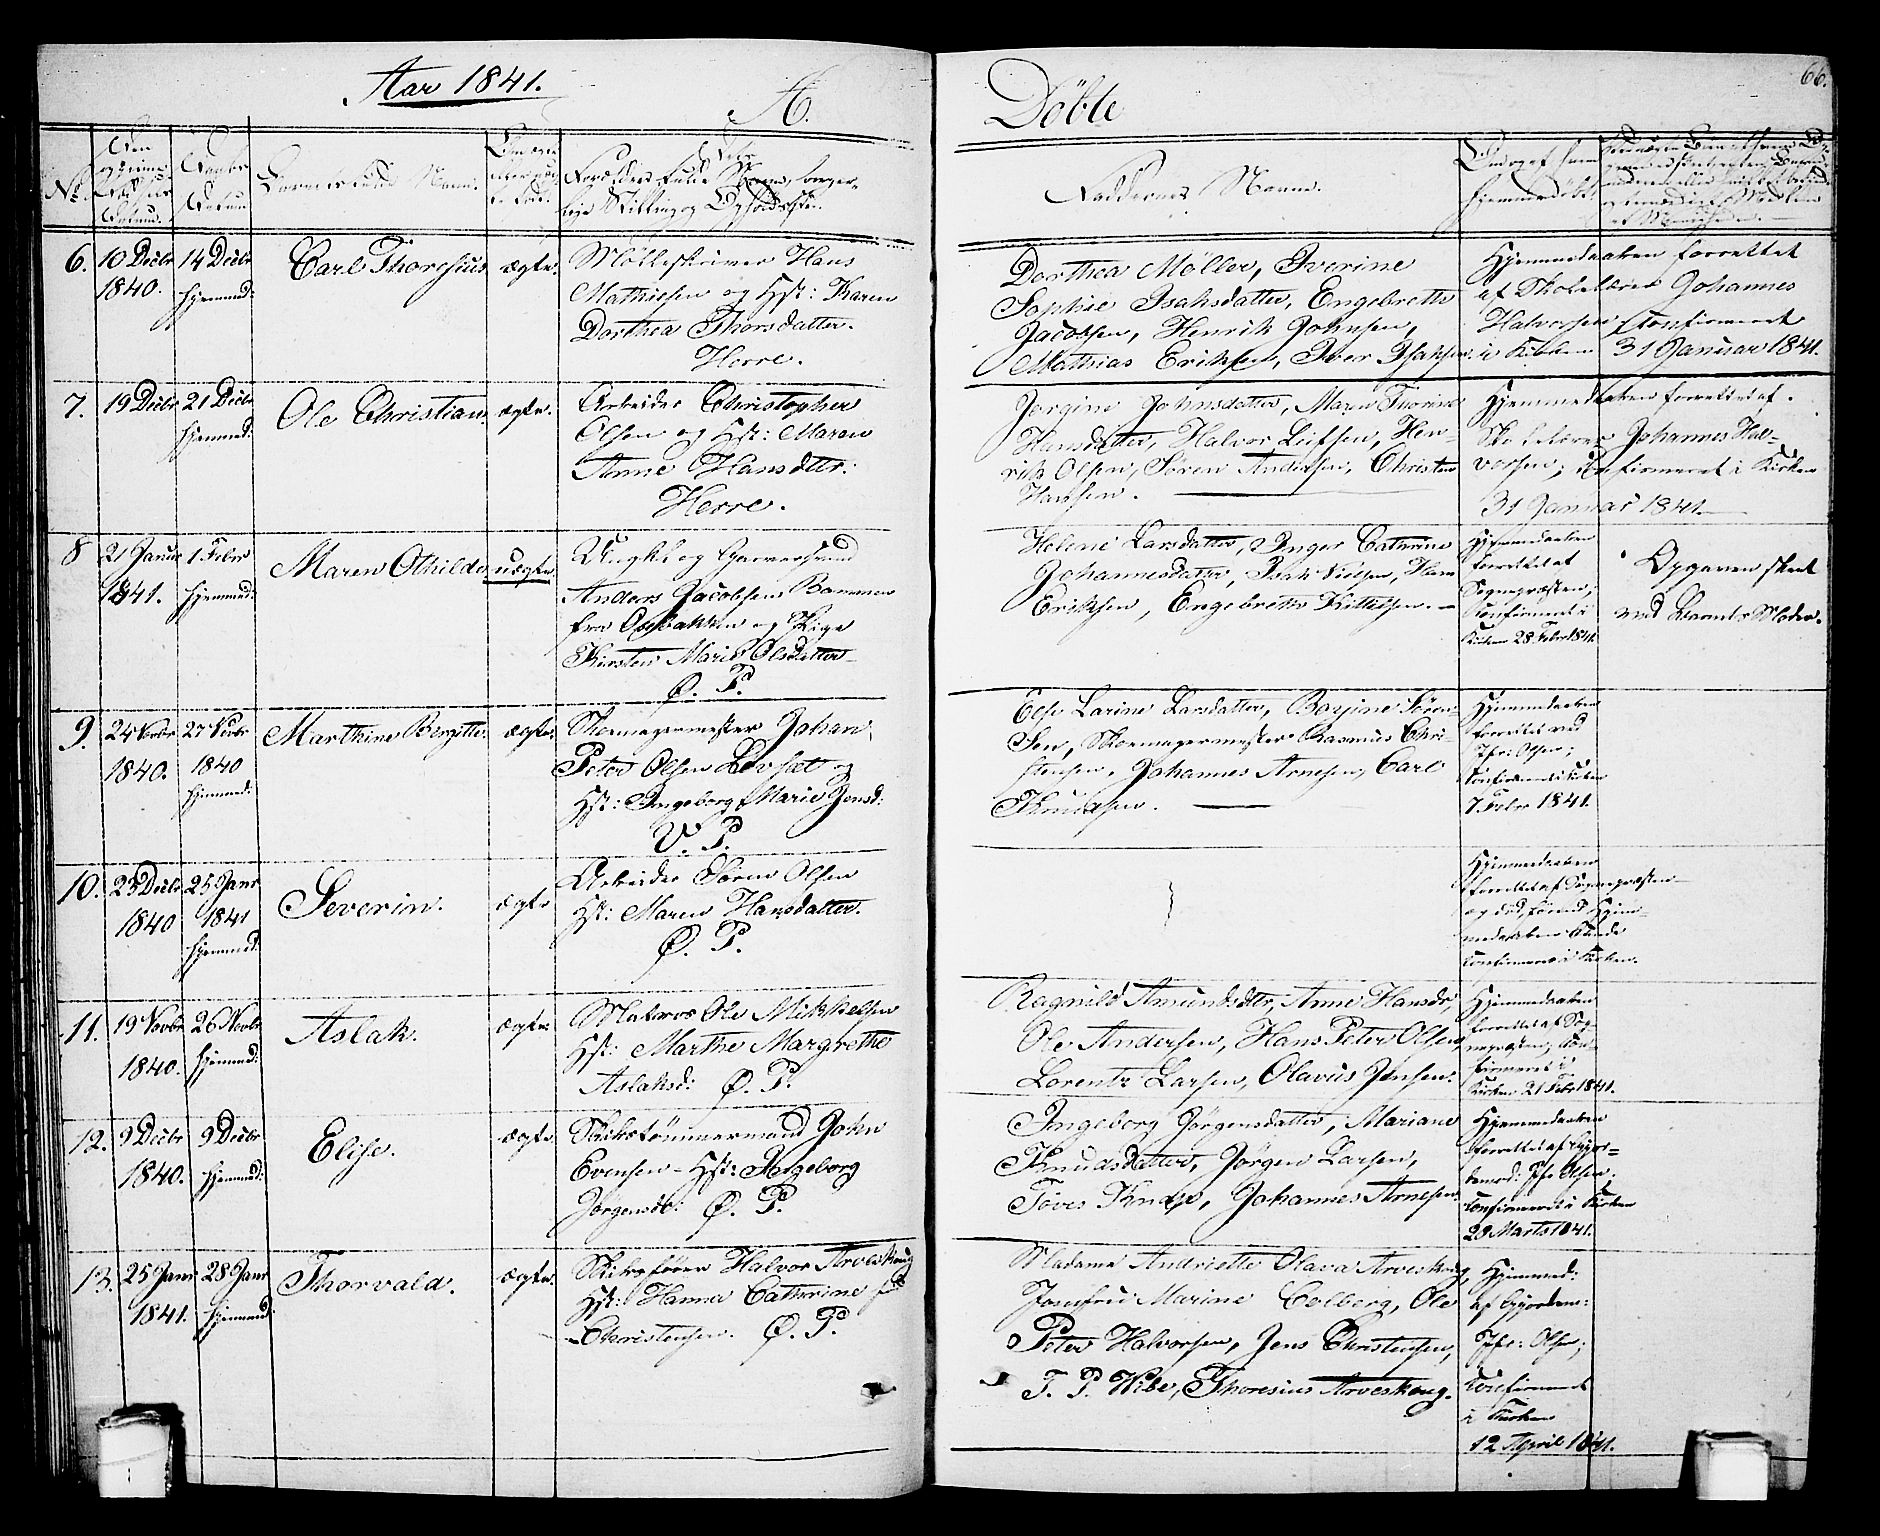 Aar 1841.
A.
Døbte
66.
No
Den
Barnets fulde Navn.
Forældres fulde Navn, borger-
lige Stilling og Opholdssted.
Faddernes Navne.
6.
10 Decbr
1840.
14 Decbr
hjemmed:
Carl Thoresius
ægte.
Hans
Mathiesen og Hst: Karen
Dorthea Thorsdatter.
Herre.
Dorthea Møller, Iverine
Sophie Isaksdatter, Engebreth
Jacobsen, Henrik Johnsen,
Mathias Eriksen, Iver Isaksen.
Hjemmedaaben forrettet
af Skolelærer Johannes
Halvorsen, Confirmeret
i Kirken 31 Januar 1841.
7.
19 Decbr
21 Decbr
hjemmed:
Ole Christian.
ægte.
Arbeider Christopher
Olsen og Hst: Maren
Anne Hansdttr:
Herre.
Jørgine Johnsdatter, Maren Thorine
Hansdatter, Halvor Leifsen, Hen-
rik Olsen, Søren Andersen, Christen
Hansen.
Hjemmedaaben forrettet af
Skolelærer Johannes Hal-
vorsen; Confirmeret i Kirken
31 Januar 1841.
8
21 Januar
1841.
1 Febr
hjemmed:
Maren Othilde
uægte.
Ungkl og
Anders Jacobsen Bammen
fra og Pige
Kirsten Marie Olsdatter
Ø. P.
Helene Larsdatter, Inger Cathrine
Johannesdatter, Isak Nielsen, Hans
Eriksen, Engebreth Kittilsen.
Hjemmedaaben
forrettet af
Sognepræsten;
Confirmeret i
Kirken 28 Febr 1841.
Opgaven skeet
ved Barnets Moder.
9.
24 Novbr
1840.
27 Novbr
1840
hjemmed:
Marthine Bergitte.
ægte.
Skomagermester Johan
Peter Olsen Løvsæt og
Hst: Ingeborg Marie Jensd:
V. P.
Else Larine Larsdatter, Borgine Sören-
sen, Skomagermester Rasmus Chri-
stensen, Johannes Arnesen, Carl
Knudsen.
Hjemmedaaben
forrettet ved
Jfr: Olsen;
Confirmeret i Kirken
7 Febr 1841.
10.
23 Decbr
1840
25 Janr
1841
hjemmed:
Severin.
ægte
Arbeider Søren Olsen
Hst: Maren Hansdatter.
Ø. P.
Hjemmedaaben
forrettet af Sognepræsten
og död, førend Hjem-
medaaben kunde
confirmeres i Kirken.
11.
19 Novbr
1840.
26 Novbr
hjemmed:
Aslak.
ægte.
Matros Ole Mikkelsen
Hst: Marthe Margrethe
Aslaksd: Ø. P.
Ragnild Amundsdttr, Anne Hansdr,
Ole Andersen, Hans Peter Olsen,
Lorentz Larsen, Olavus Jensen.
Hjemmedaaben
forrettet af Sog-
nepræsten; Con-
firmeret i
Kirken 21 Febr 1841.
12.
9 Decbr
1840.
9 Decbr
hjemmed:
Elise.
ægte.
Skibstömmermand John
Evensen - Hst: Ingeborg
Jörgensdt: Ø. P.
Ingeborg Jörgensdatter, Mariane
Knudsdatter, Jörgen Larsen,
Töves Knudsen, Johannes Arnesen.
Hjemmedaaben
forrettet af Gjor-
demod: Jfr Olsen;
Confirmeret i Kirken
28 Marts 1841.
13.
25 Janr
1841.
28 Janr
hjemmed
Thorvald.
ægte.
Skibsförer Halvor Arveskoug
Hst: Hanna Cathrine född
Christensen. Ø. P.
Madame Andriette Olava Arveskoug,
Jomfru Marine Colberg, Ole
Peter Halvorsen, Jens Christensen,
T. P. Wibe, Thoresius Arveskoug.
Hjemmed:
af Gjordem:
Jfr: Olsen;
Confirmeret
i Kirken
12 April 1841.